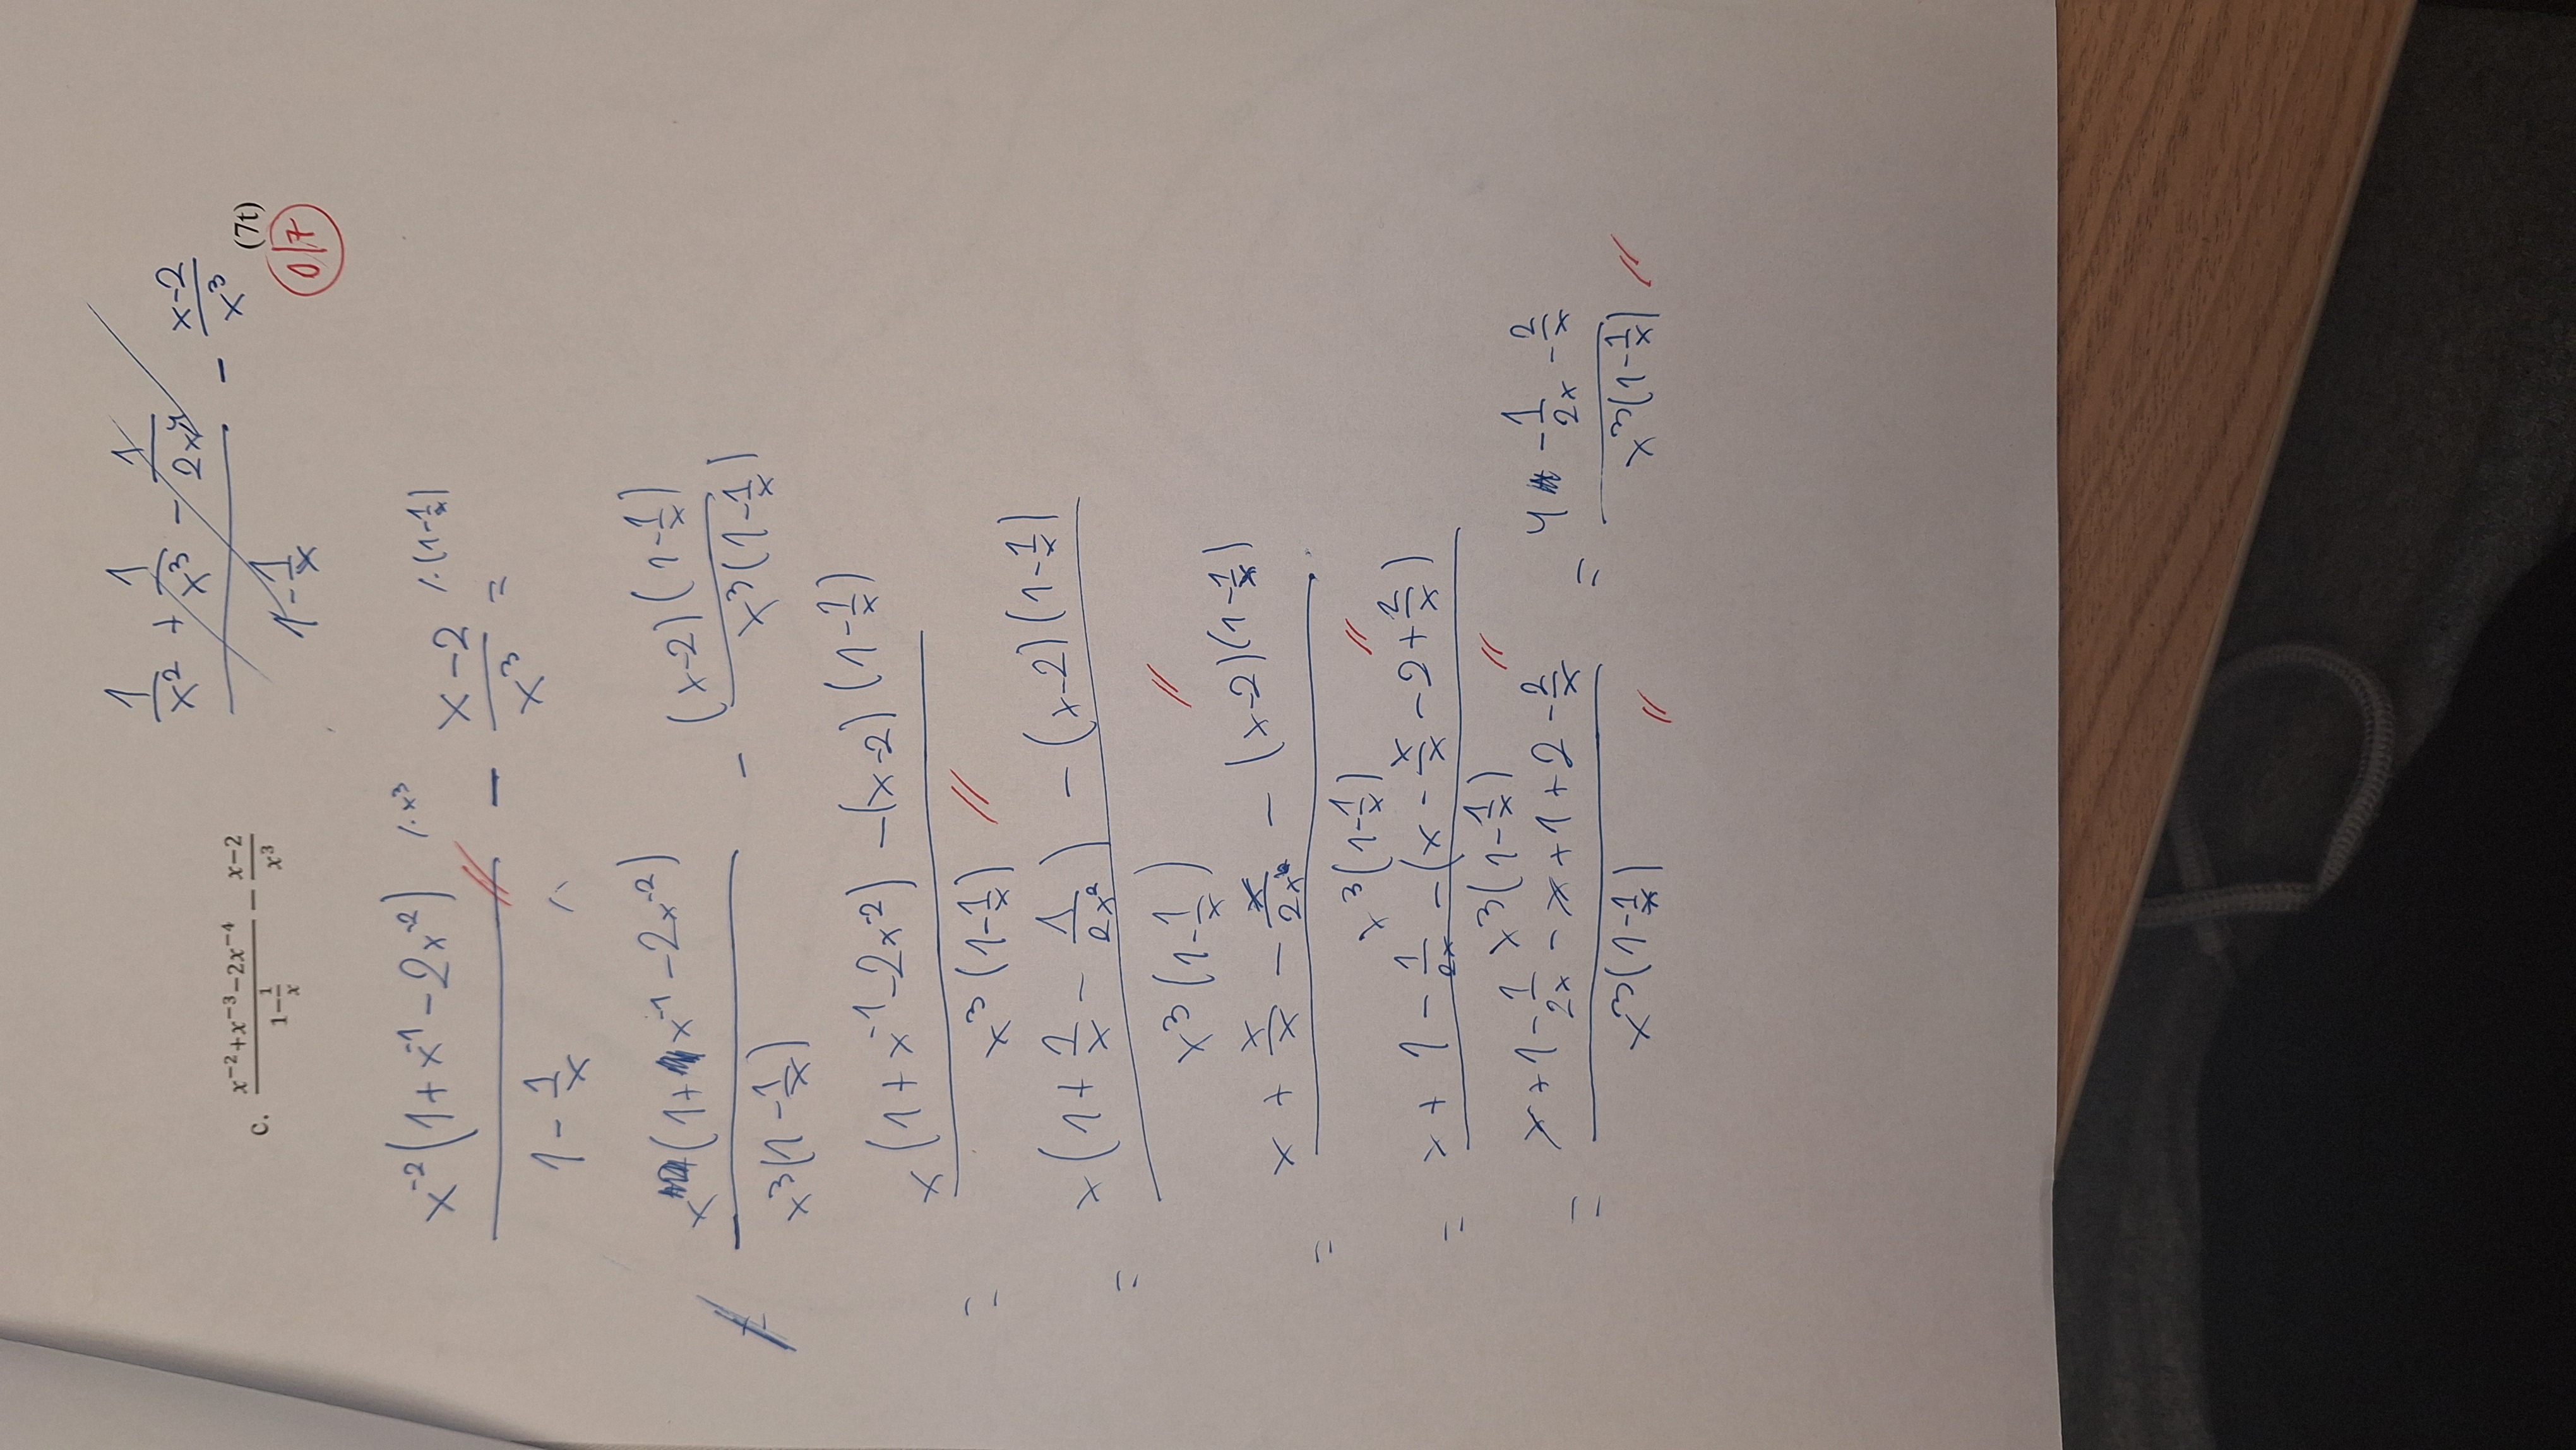 1/x² + 1/x³ - 1/2x⁴ / 1 - 1/x - x-2/x³
c. x⁻²+x⁻³−2x⁻⁴ / 1−1/x − x−2/x³ (7t)
0/7
x⁻²(1+x⁻¹-2x⁻²) / 1-1/x /·x³ - x-2/x³ /·(1-1/x) =
x(1+x⁻¹-2x⁻²) / x³(1-1/x) - (x-2)(1-1/x) / x³(1-1/x)
= x(1+x⁻¹-2x⁻²) -(x-2)(1-1/x) / x³(1-1/x)
= x(1+1/x - 1/2x²) - (x-2)(1-1/x) / x³(1-1/x)
= x + x/x - x/2x² - (x-2)(1-1/x) / x³(1-1/x)
= x + 1 - 1/2x -(x - x/x - 2 + 2/x) / x³(1-1/x)
= x+1-1/2x - x+1+2-2/x / x³(1-1/x) = 4 -1/2x -2/x / x³(1-1/x)